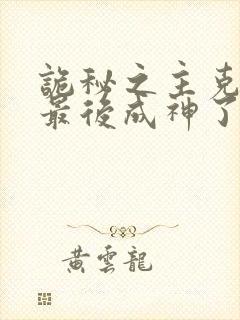 詭秘之主克
最後成神了
黃雲龍